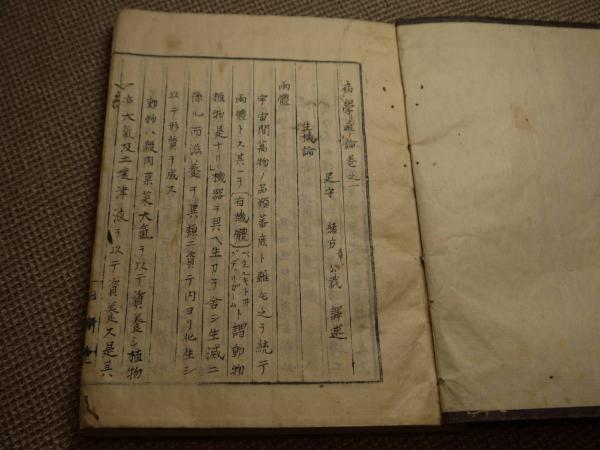 病學通論卷之一
足守 緒方章公裁 譯述
生機論
兩體
宇宙間萬物ノ品類蕃庶ト雖モ之ヲ統テ
兩體トス其一ヲ有機體 ト謂動物
植物是ナリ機器ヲ具ヘ生力ヲ舍シ生滅ニ
係ル而滋養ヲ異類ニ資テ内ヨリ化生シ
以テ形質ヲ成ス
動物ハ穀肉菓菜大氣ヲ以テ資養シ植物
ハ大氣及土壤津液ヲ以テ資養ス是其